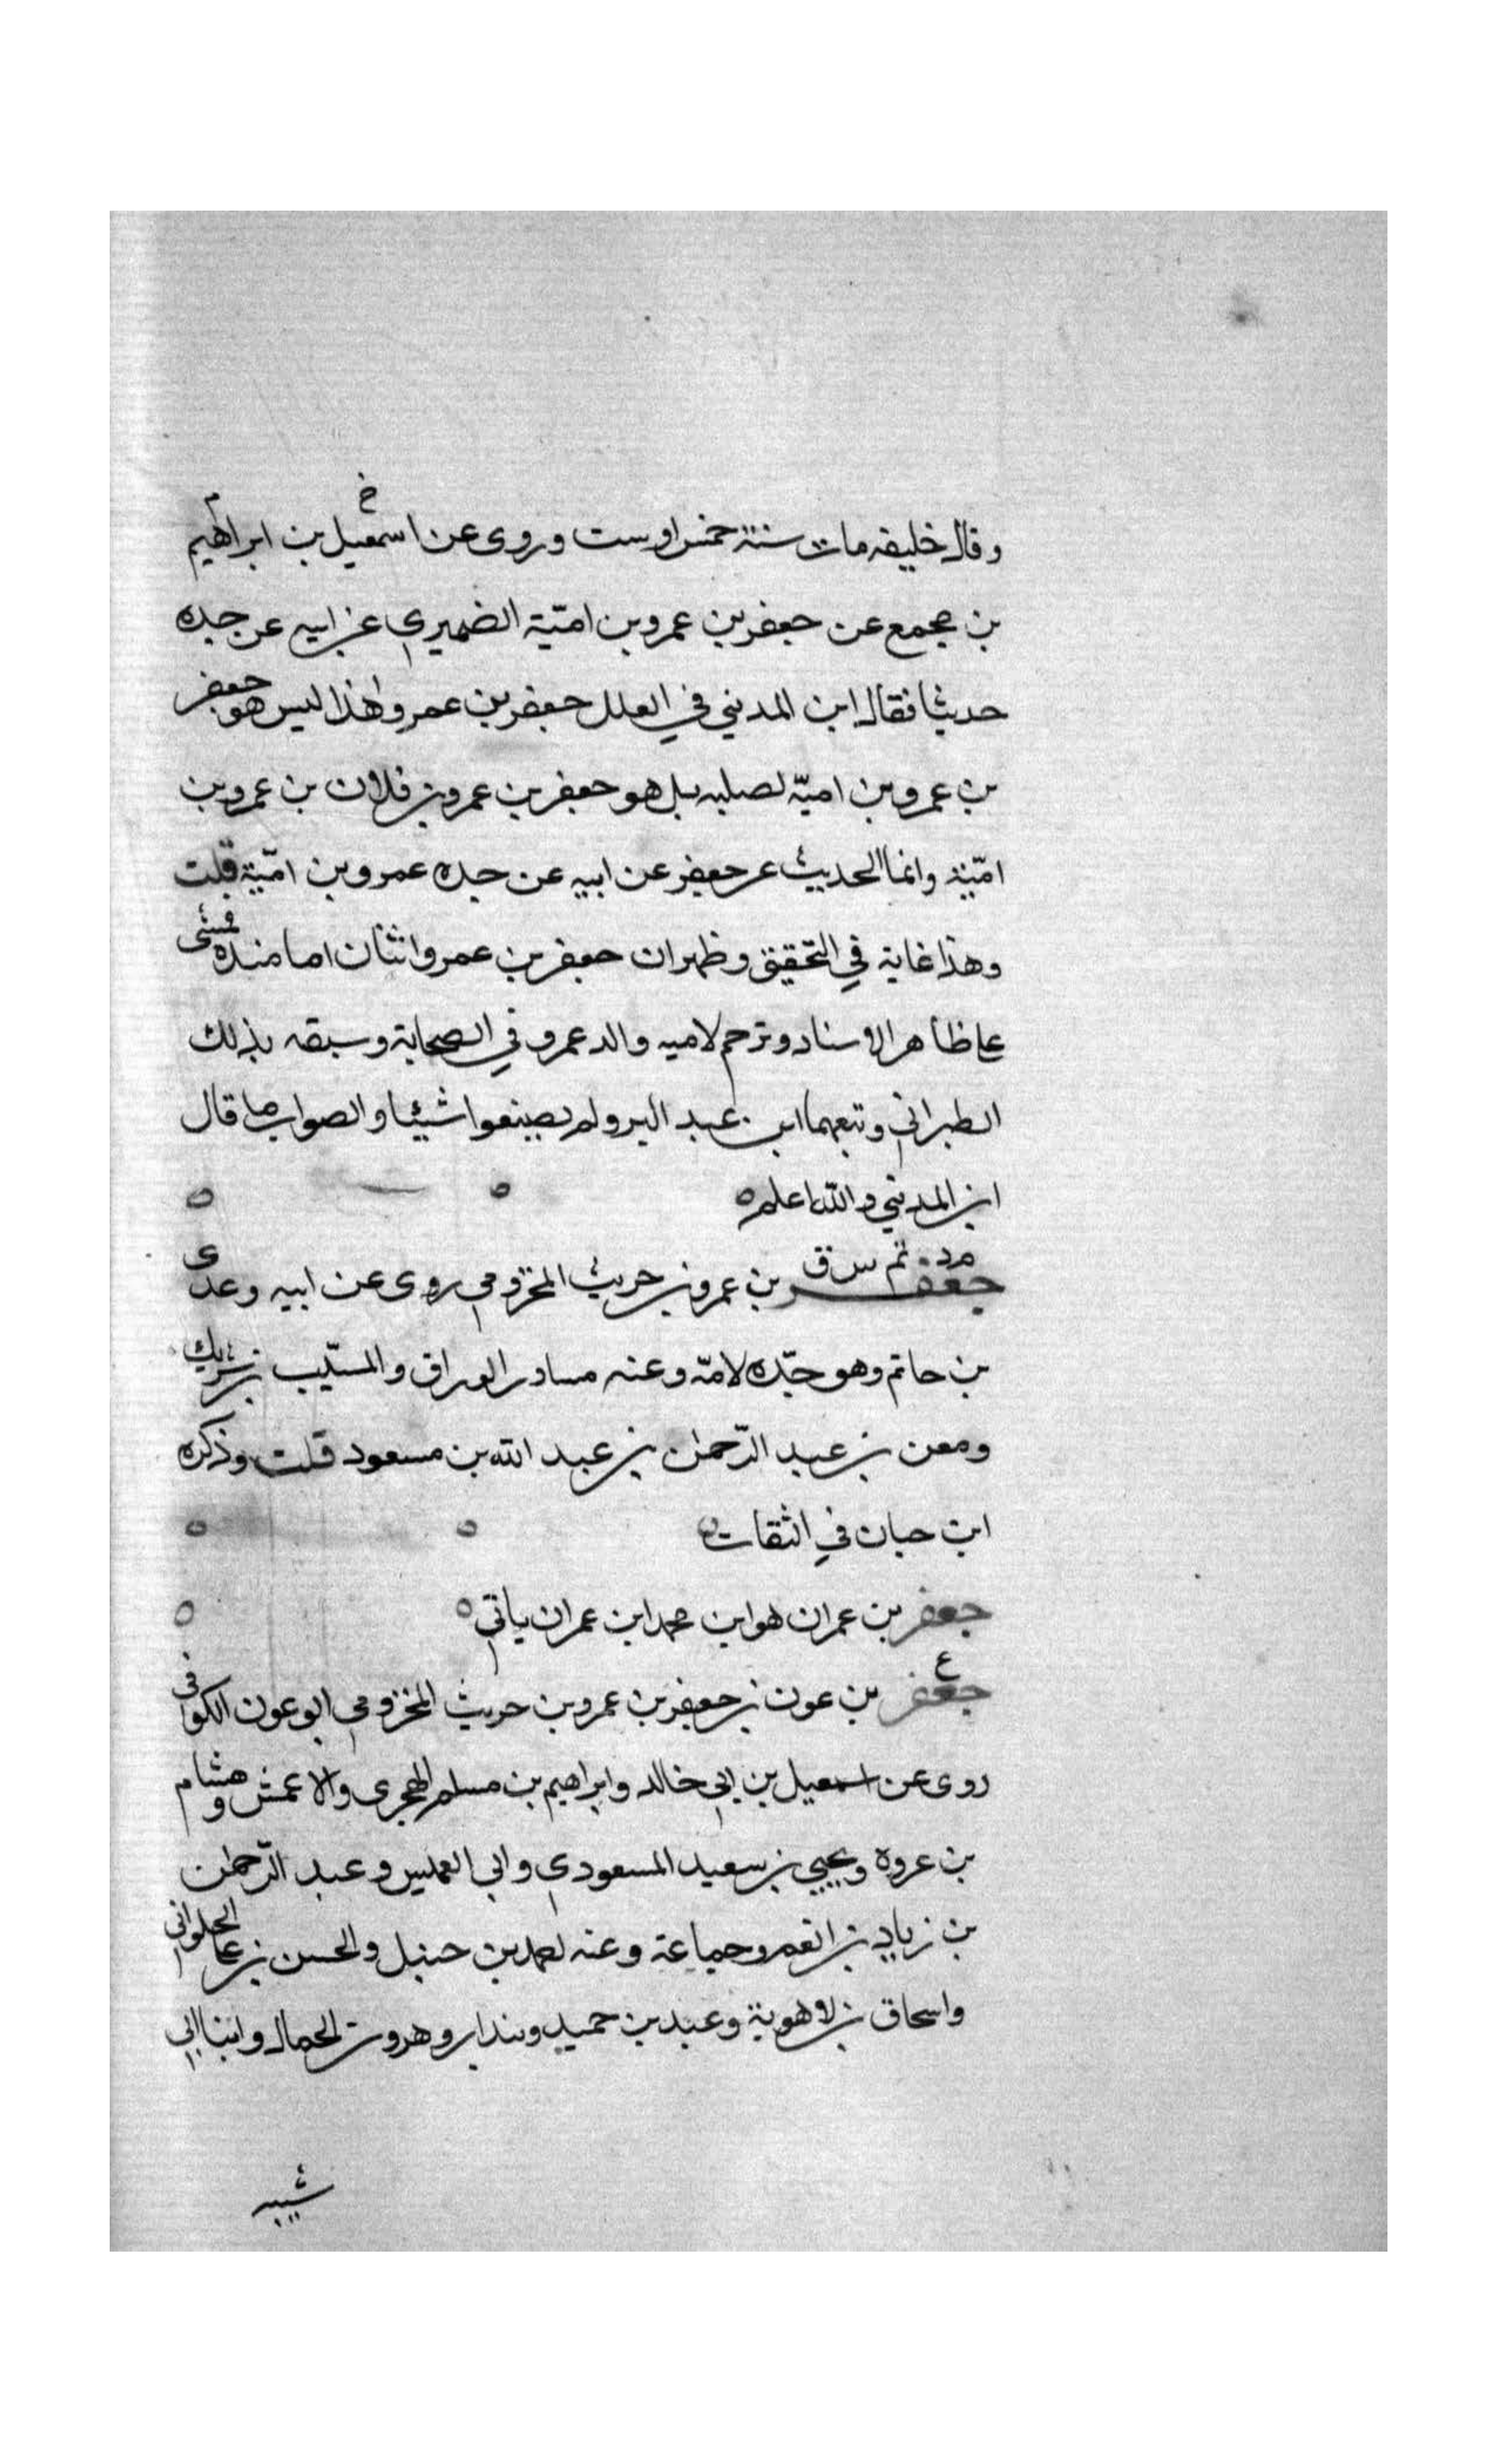 وقال خليفه مات سنة خمس اوست وروى عن اسمعيل بن ابراهيم
بن مجمع عن جعفر بن عمرو بن امية الضميري عن ابيه عن جده
حديثا فقال ابن المديني في العلل جعفر بن عمرو هذا ليس هو جعفر
بن عمرو بن امية لصلبه بل هو جعفر بن عمرو بن فلان بن عمرو بن
امية وانما الحديث عن جعفر عن ابيه عن جده عمرو بن امية قلت
وهذا غاية في التحقيق وظهر ان جعفر بن عمرو اثنان اما منده فمشى
على ظاهر الاسناد وترجم لاميه والد عمرو في الصحابة وسبقه بذلك
الطبراني وتبعهما ابن عبد البر ولم يصنعوا شيئا والصواب ما قال
ابن المديني والله اعلم ه
مد تم س ق
جعفر بن عمرو بن حريث المخزومي روى عن ابيه وعدى
بن حاتم وهو جده لامه وعنه مساور العراق والمسيب بن شريك
ومعن بن عبد الرحمن بن عبد الله بن مسعود قلت وذكره
ابن حبان في الثقات ه
جعفر بن عمران هو ابن محمد ابن عمران ياتي ه
ع
جعفر بن عون بن جعفر بن عمرو بن حريث المخزومي ابو عون الكوفى
روى عن اسمعيل بن ابي خالد وابراهيم بن مسلم الهجرى والاعمش وهشام
بن عروة ويحيي بن سعيد المسعودي وابى العميس وعبد الرحمن
بن زياد بن انعم وجماعة وعنه احمد بن حنبل والحسن بن على الحلواني
واسحاق بن لاهوية وعبد بن حميد وبندار وهرون الحمال وابنا ابي
شيبه